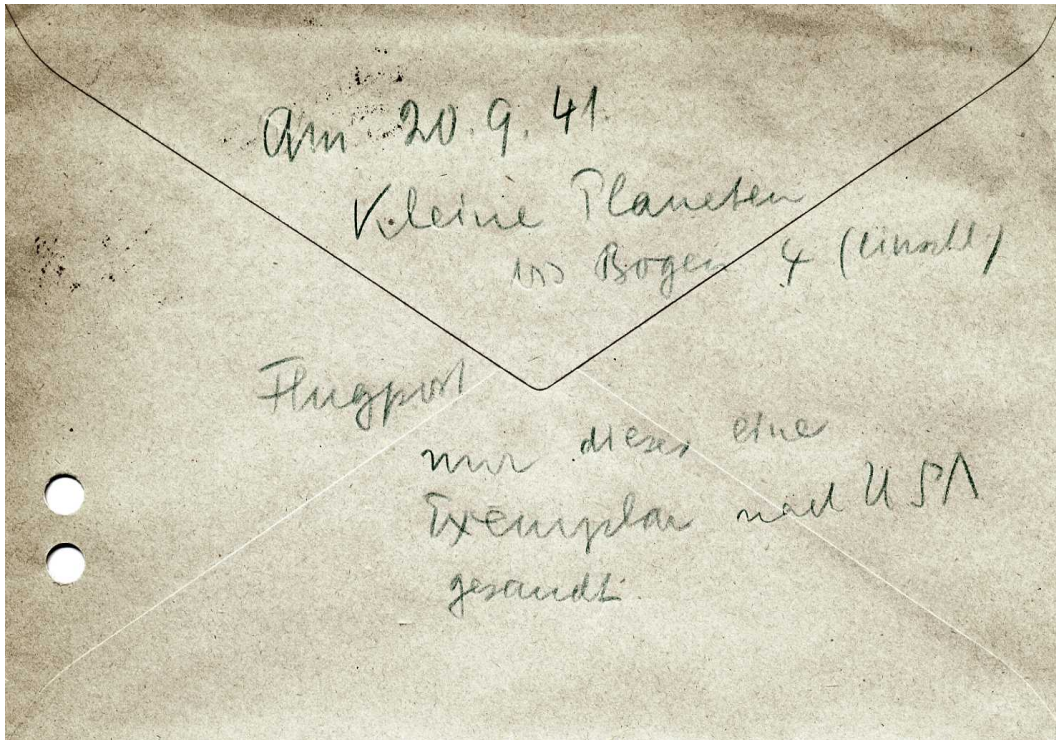 Am 20.9.41.
Kleine Planeten
bis Bogen 4 (einschl.)
Flugpost
nur dieses eine
Exemplar nach USA
gesandt.